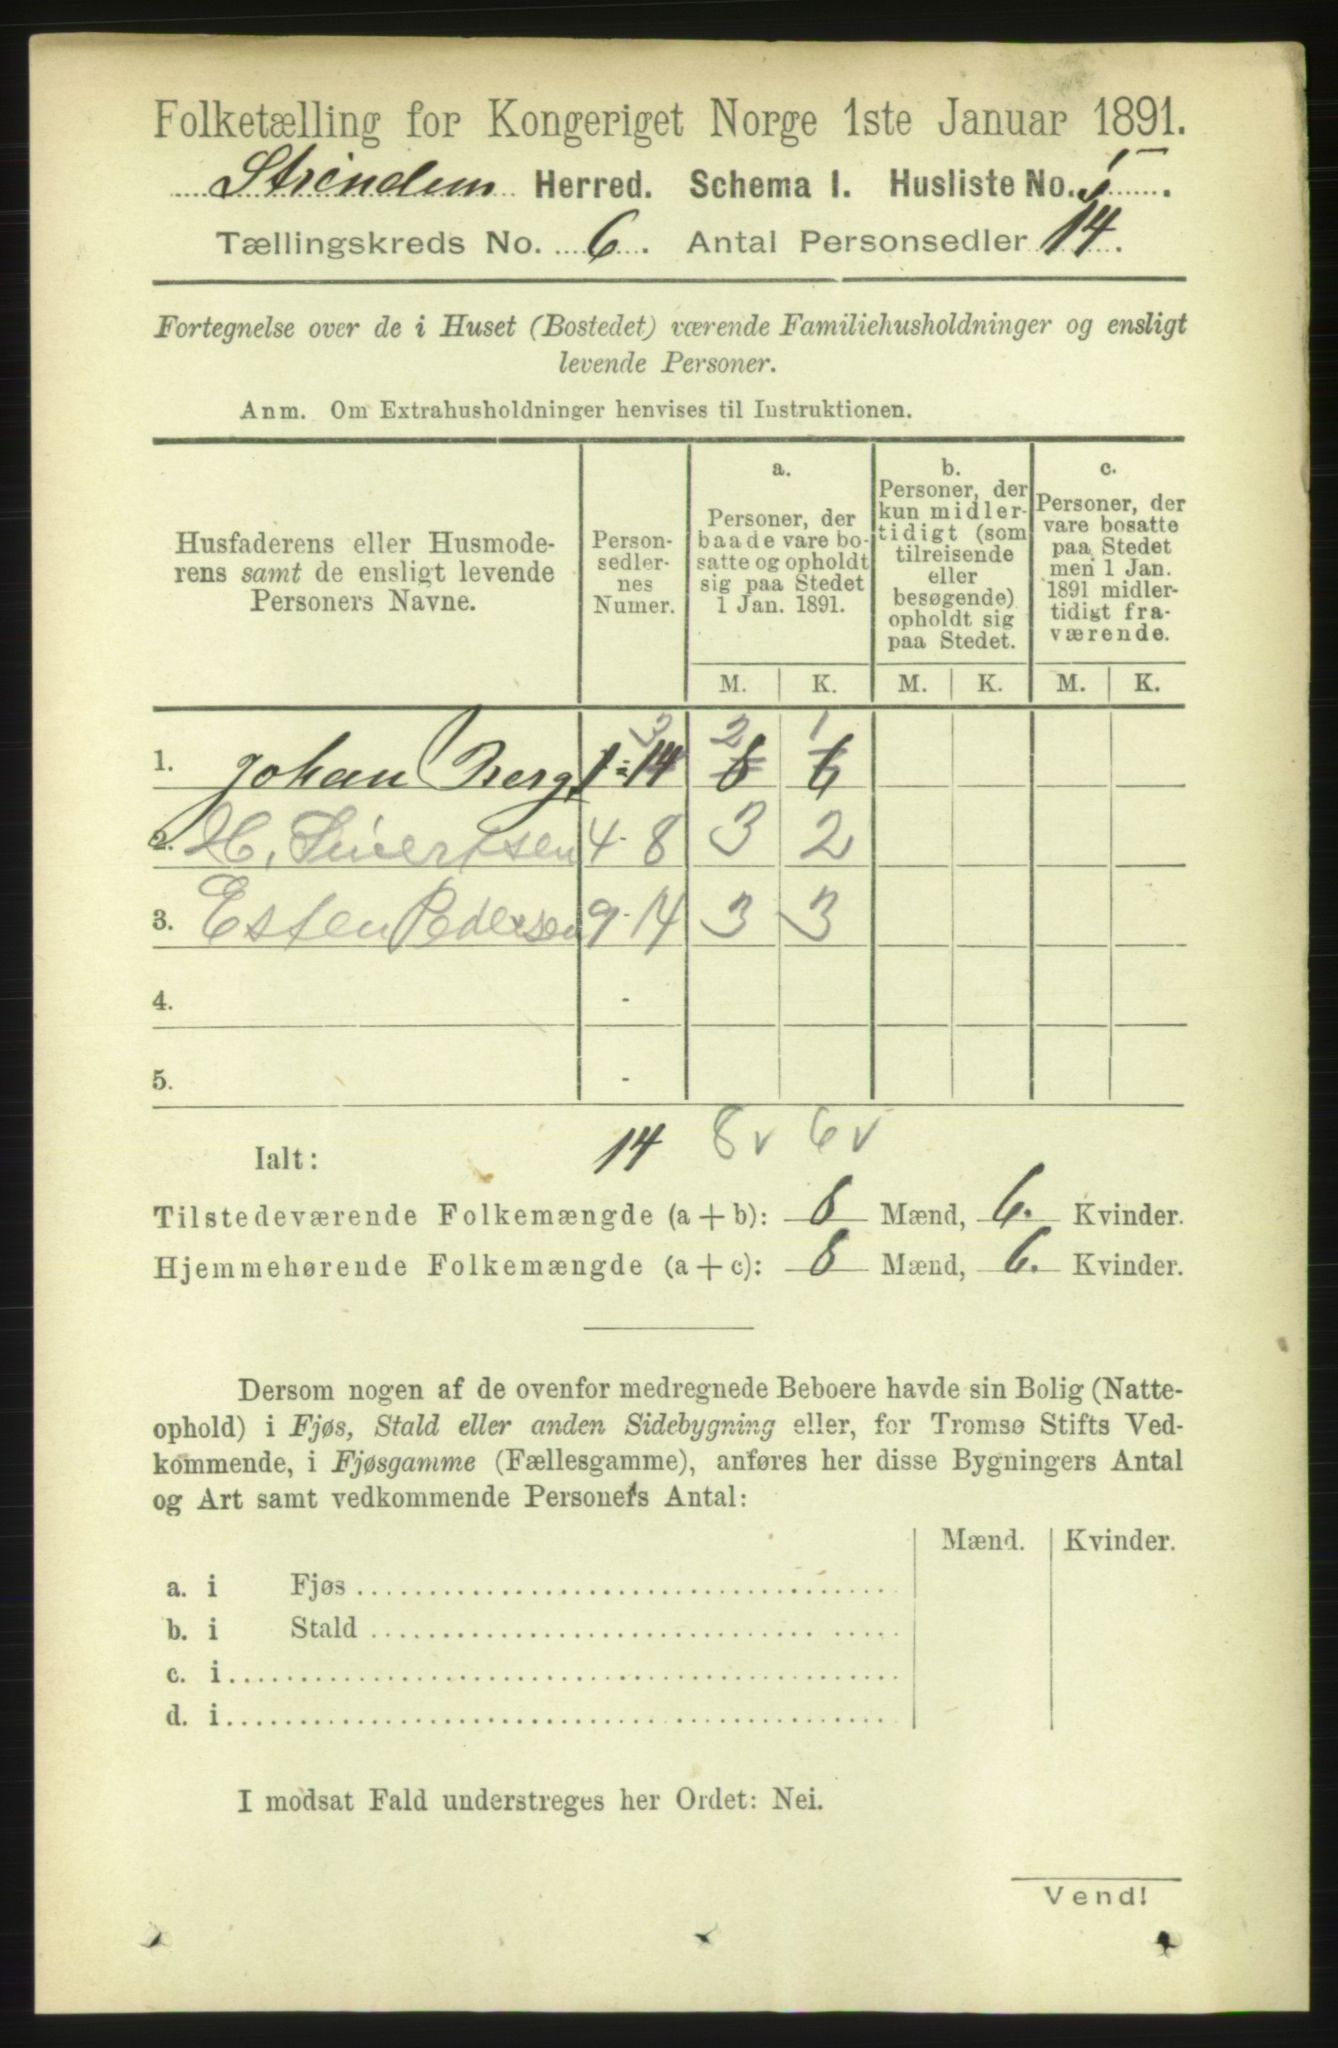 Folketælling for Kongeriget Norge 1ste Januar 1891.
Strinden Herred. Schema I. Husliste No.
Tællingskreds No. 6. Antal Personsedler 14.
Fortegnelse over de i Huset (Bostedet) værende Familiehusholdninger og ensligt
levende Personer.
Anm. Om Extrahusholdninger henvises til Instruktionen.
Husfaderens eller Husmode-
rens samt de ensligt levende
Personers Navne.
Person-
sedler-
nes
Numer.
a.
Personer, der
baade vare bo-
satte og opholdt
sig paa Stedet
1 Jan. 1891.
b.
Personer, der
kun midler-
tidigt (som
tilreisende
eller
besøgende)
opholdt sig
paa Stedet.
c.
Personer, der
vare bosatte
paa Stedet
men 1 Jan.
1891 midler-
tidigt fra-
værende.
M. K. M. K. M. K.
3 2 1
1. Johan Berg 1-14 8 6
2. H. Sivertsen 4-8 3 2
3. Esten Pedersen 9-14 3 3
4. -
5. -
Ialt: 14 8 v 6 v
Tilstedeværende Folkemængde (a + b): 8 Mænd, 6. Kvinder.
Hjemmehørende Folkemængde (a + c): 8 Mænd, 6. Kvinder.
Dersom nogen af de ovenfor medregnede Beboere havde sin Bolig (Natte-
ophold) i Fjøs, Stald eller anden Sidebygning eller, for Tromsø Stifts Ved-
kommende, i Fjøsgamme (Fællesgamme), anføres her disse Bygningers Antal
og Art samt vedkommende Personers Antal:
Mænd. Kvinder.
a. i Fjøs
b. i Stald
c. i
d. i
I modsat Fald understreges her Ordet: Nei.
Vend!